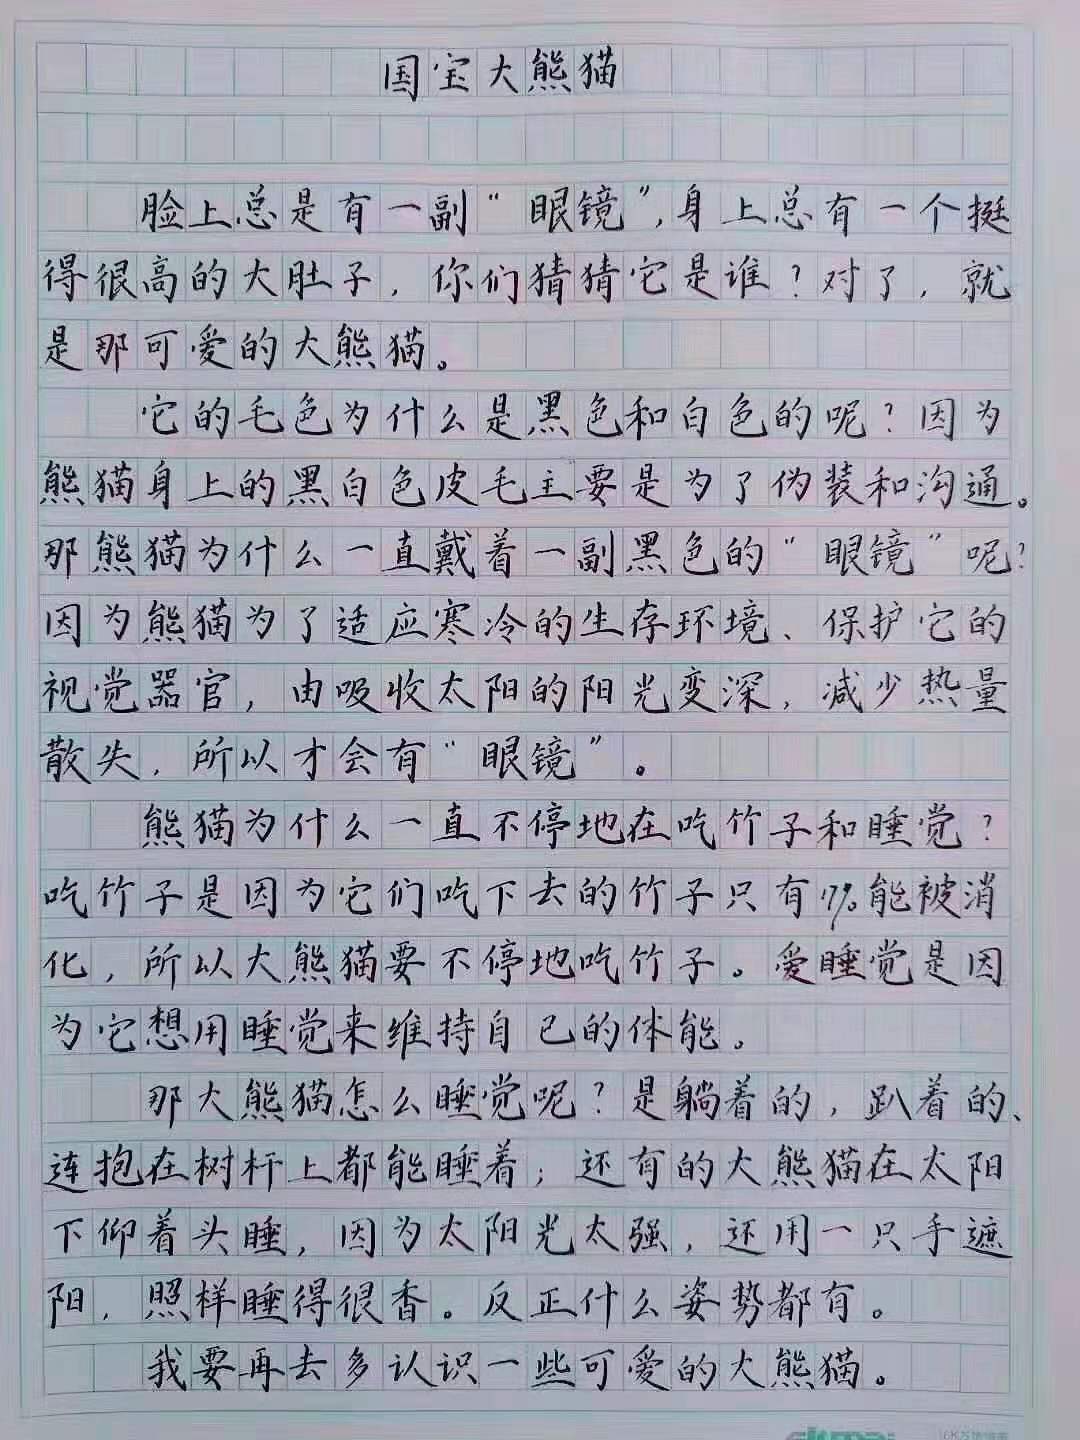 国宝大熊猫
脸上总是有一副“眼镜”,身上总有一个挺
得很高的大肚子,你们猜猜它是谁?对了,就
是那可爱的大熊猫。
它的毛色为什么是黑色和白色的呢?因为
熊猫身上的黑白色皮毛主要是为了伪装和沟通。
那熊猫为什么一直戴着一副黑色的“眼镜”呢?
因为熊猫为了适应寒冷的生存环境、保护它的
视觉器官,由吸收太阳的阳光变深,减少热量
散失,所以才会有“眼镜”。
熊猫为什么一直不停地在吃竹子和睡觉?
吃竹子是因为它们吃下去的竹子只有17%能被消
化,所以大熊猫要不停地吃竹子。爱睡觉是因
为它想用睡觉来维持自己的体能。
那大熊猫怎么睡觉呢?是躺着的,趴着的、
连抱在树杆上都能睡着;还有的大熊猫在太阳
下仰着头睡,因为太阳光太强,还用一只手遮
阳,照样睡得很香。反正什么姿势都有。
我要再去多认识一些可爱的大熊猫。